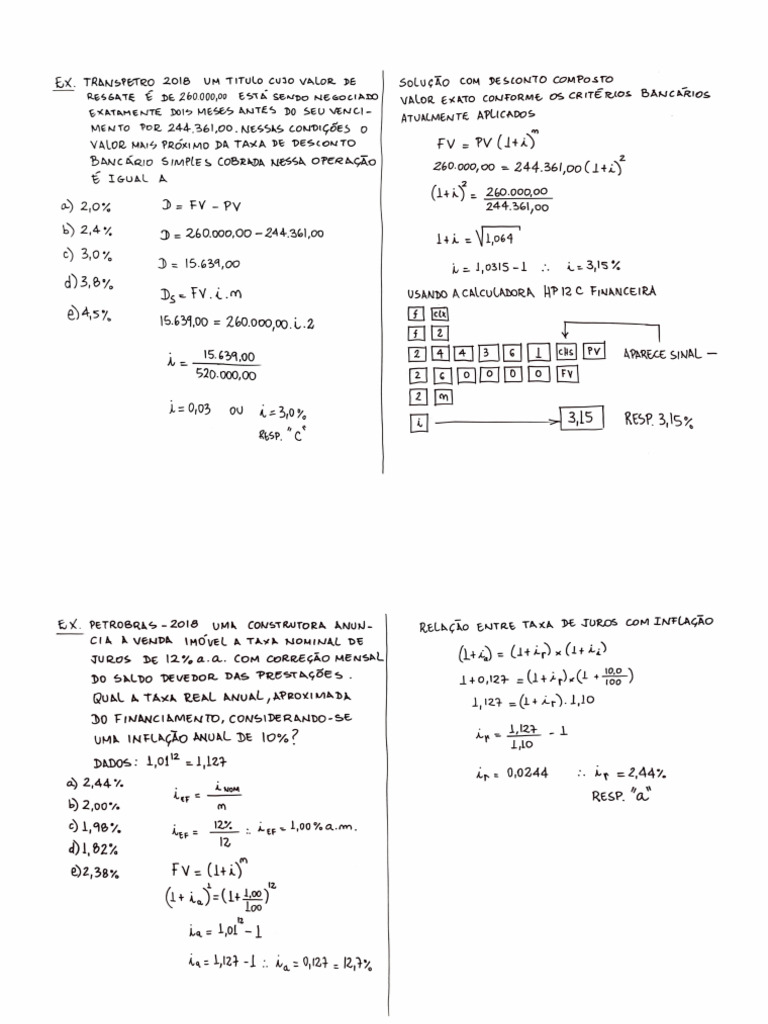 EX. TRANSPETRO 2018 UM TITULO CUJO VALOR DE
RESGATE É DE 260.000,00 ESTÁ SENDO NEGOCIADO
EXATAMENTE DOIS MESES ANTES DO SEU VENCI-
MENTO POR 244.361,00. NESSAS CONDIÇÕES O
VALOR MAIS PRÓXIMO DA TAXA DE DESCONTO
BANCÁRIO SIMPLES COBRADA NESSA OPERAÇÃO
É IGUAL A
a) 2,0%
b) 2,4%
c) 3,0%
d) 3,8%
e) 4,5%
D = FV - PV
D = 260.000,00 - 244.361,00
D = 15.639,00
Ds = FV.i.m
15.639,00 = 260.000,00.i.2
i = 15.639,00 / 520.000,00
i = 0,03 OU i = 3,0%
RESP. "C"
SOLUÇÃO COM DESCONTO COMPOSTO
VALOR EXATO CONFORME OS CRITÉRIOS BANCÁRIOS
ATUALMENTE APLICADOS
FV = PV (1+i)^m
260.000,00 = 244.361,00 (1+i)^2
(1+i)^2 = 260.000,00 / 244.361,00
1+i = √1,064
i = 1,0315-1 ∴ i = 3,15%
USANDO A CALCULADORA HP 12 C FINANCEIRA
f CLX
f 2
2 4 4 3 6 1 CHS PV APARECE SINAL —
2 6 0 0 0 0 FV
2 m
i → 3,15 RESP. 3,15%
EX. PETROBRAS - 2018 UMA CONSTRUTORA ANUN-
CIA A VENDA IMÓVEL A TAXA NOMINAL DE
JUROS DE 12% a.a. COM CORREÇÃO MENSAL
DO SALDO DEVEDOR DAS PRESTAÇÕES.
QUAL A TAXA REAL ANUAL, APROXIMADA
DO FINANCIAMENTO, CONSIDERANDO-SE
UMA INFLAÇÃO ANUAL DE 10%?
DADOS: 1,01^12 = 1,127
a) 2,44%
b) 2,00%
c) 1,98%
d) 1,82%
e) 2,38%
iEF = iNOM / m
iEF = 12% / 12 ∴ iEF = 1,00% a.m.
FV = (1+i)^m
(1 + ia)^1 = (1 + 1,00/100)^12
ia = 1,01^12 - 1
ia = 1,127 - 1 ∴ ia = 0,127 = 12,7%
RELAÇÃO ENTRE TAXA DE JUROS COM INFLAÇÃO
(1+ia) = (1+ir) x (1+ii)
1+0,127 = (1+ir) x (1 + 10,0/100)
1,127 = (1+ir). 1,10
ir = 1,127 / 1,10 - 1
ir = 0,0244 ∴ ir = 2,44%
RESP. "a"